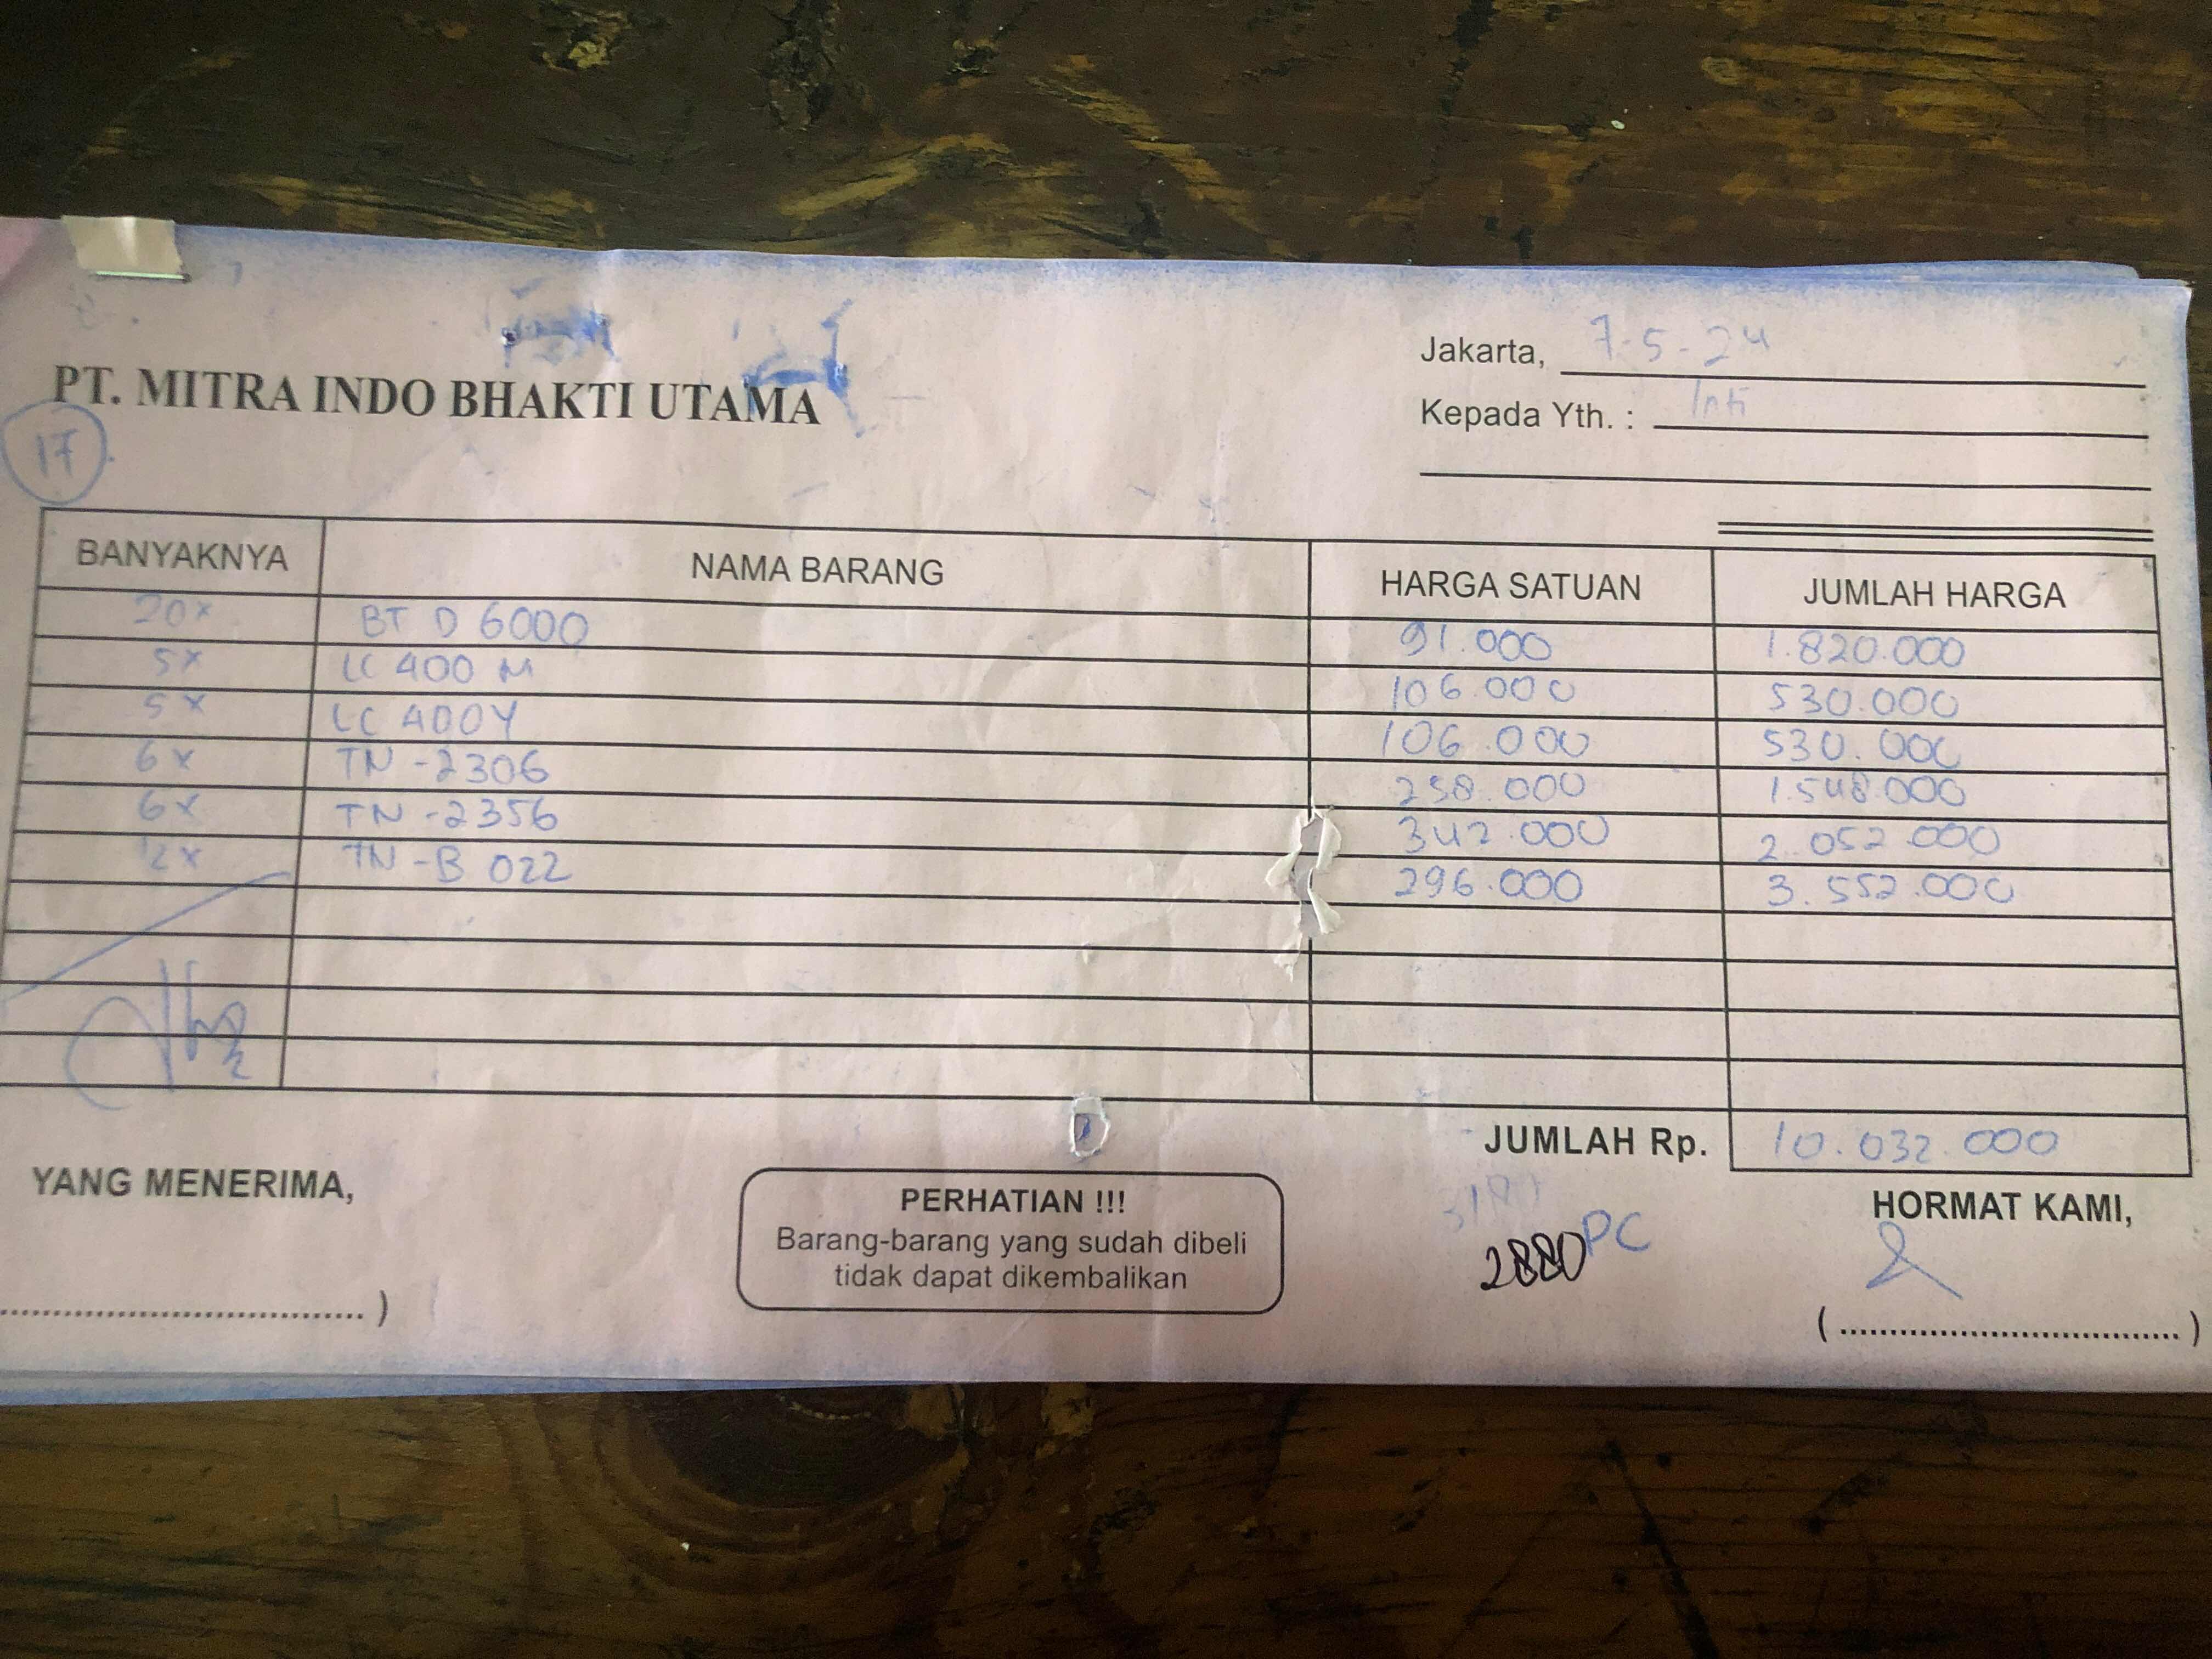 Jakarta, 7-5-24
PT. MITRA INDO BHAKTI UTAMA
Kepada Yth. : Inti
17
BANYAKNYA NAMA BARANG HARGA SATUAN JUMLAH HARGA
20x BT D 6000 91.000 1.820.000
5x LC 400 M 106.000 530.000
5x LC 400Y 106.000 530.000
6x TN-2306 258.000 1.548.000
6x TN-2356 342.000 2.052.000
12x TN-B 022 296.000 3.552.000
JUMLAH Rp. 10.032.000
YANG MENERIMA,
PERHATIAN !!!
Barang-barang yang sudah dibeli
tidak dapat dikembalikan
2880 PC
HORMAT KAMI,